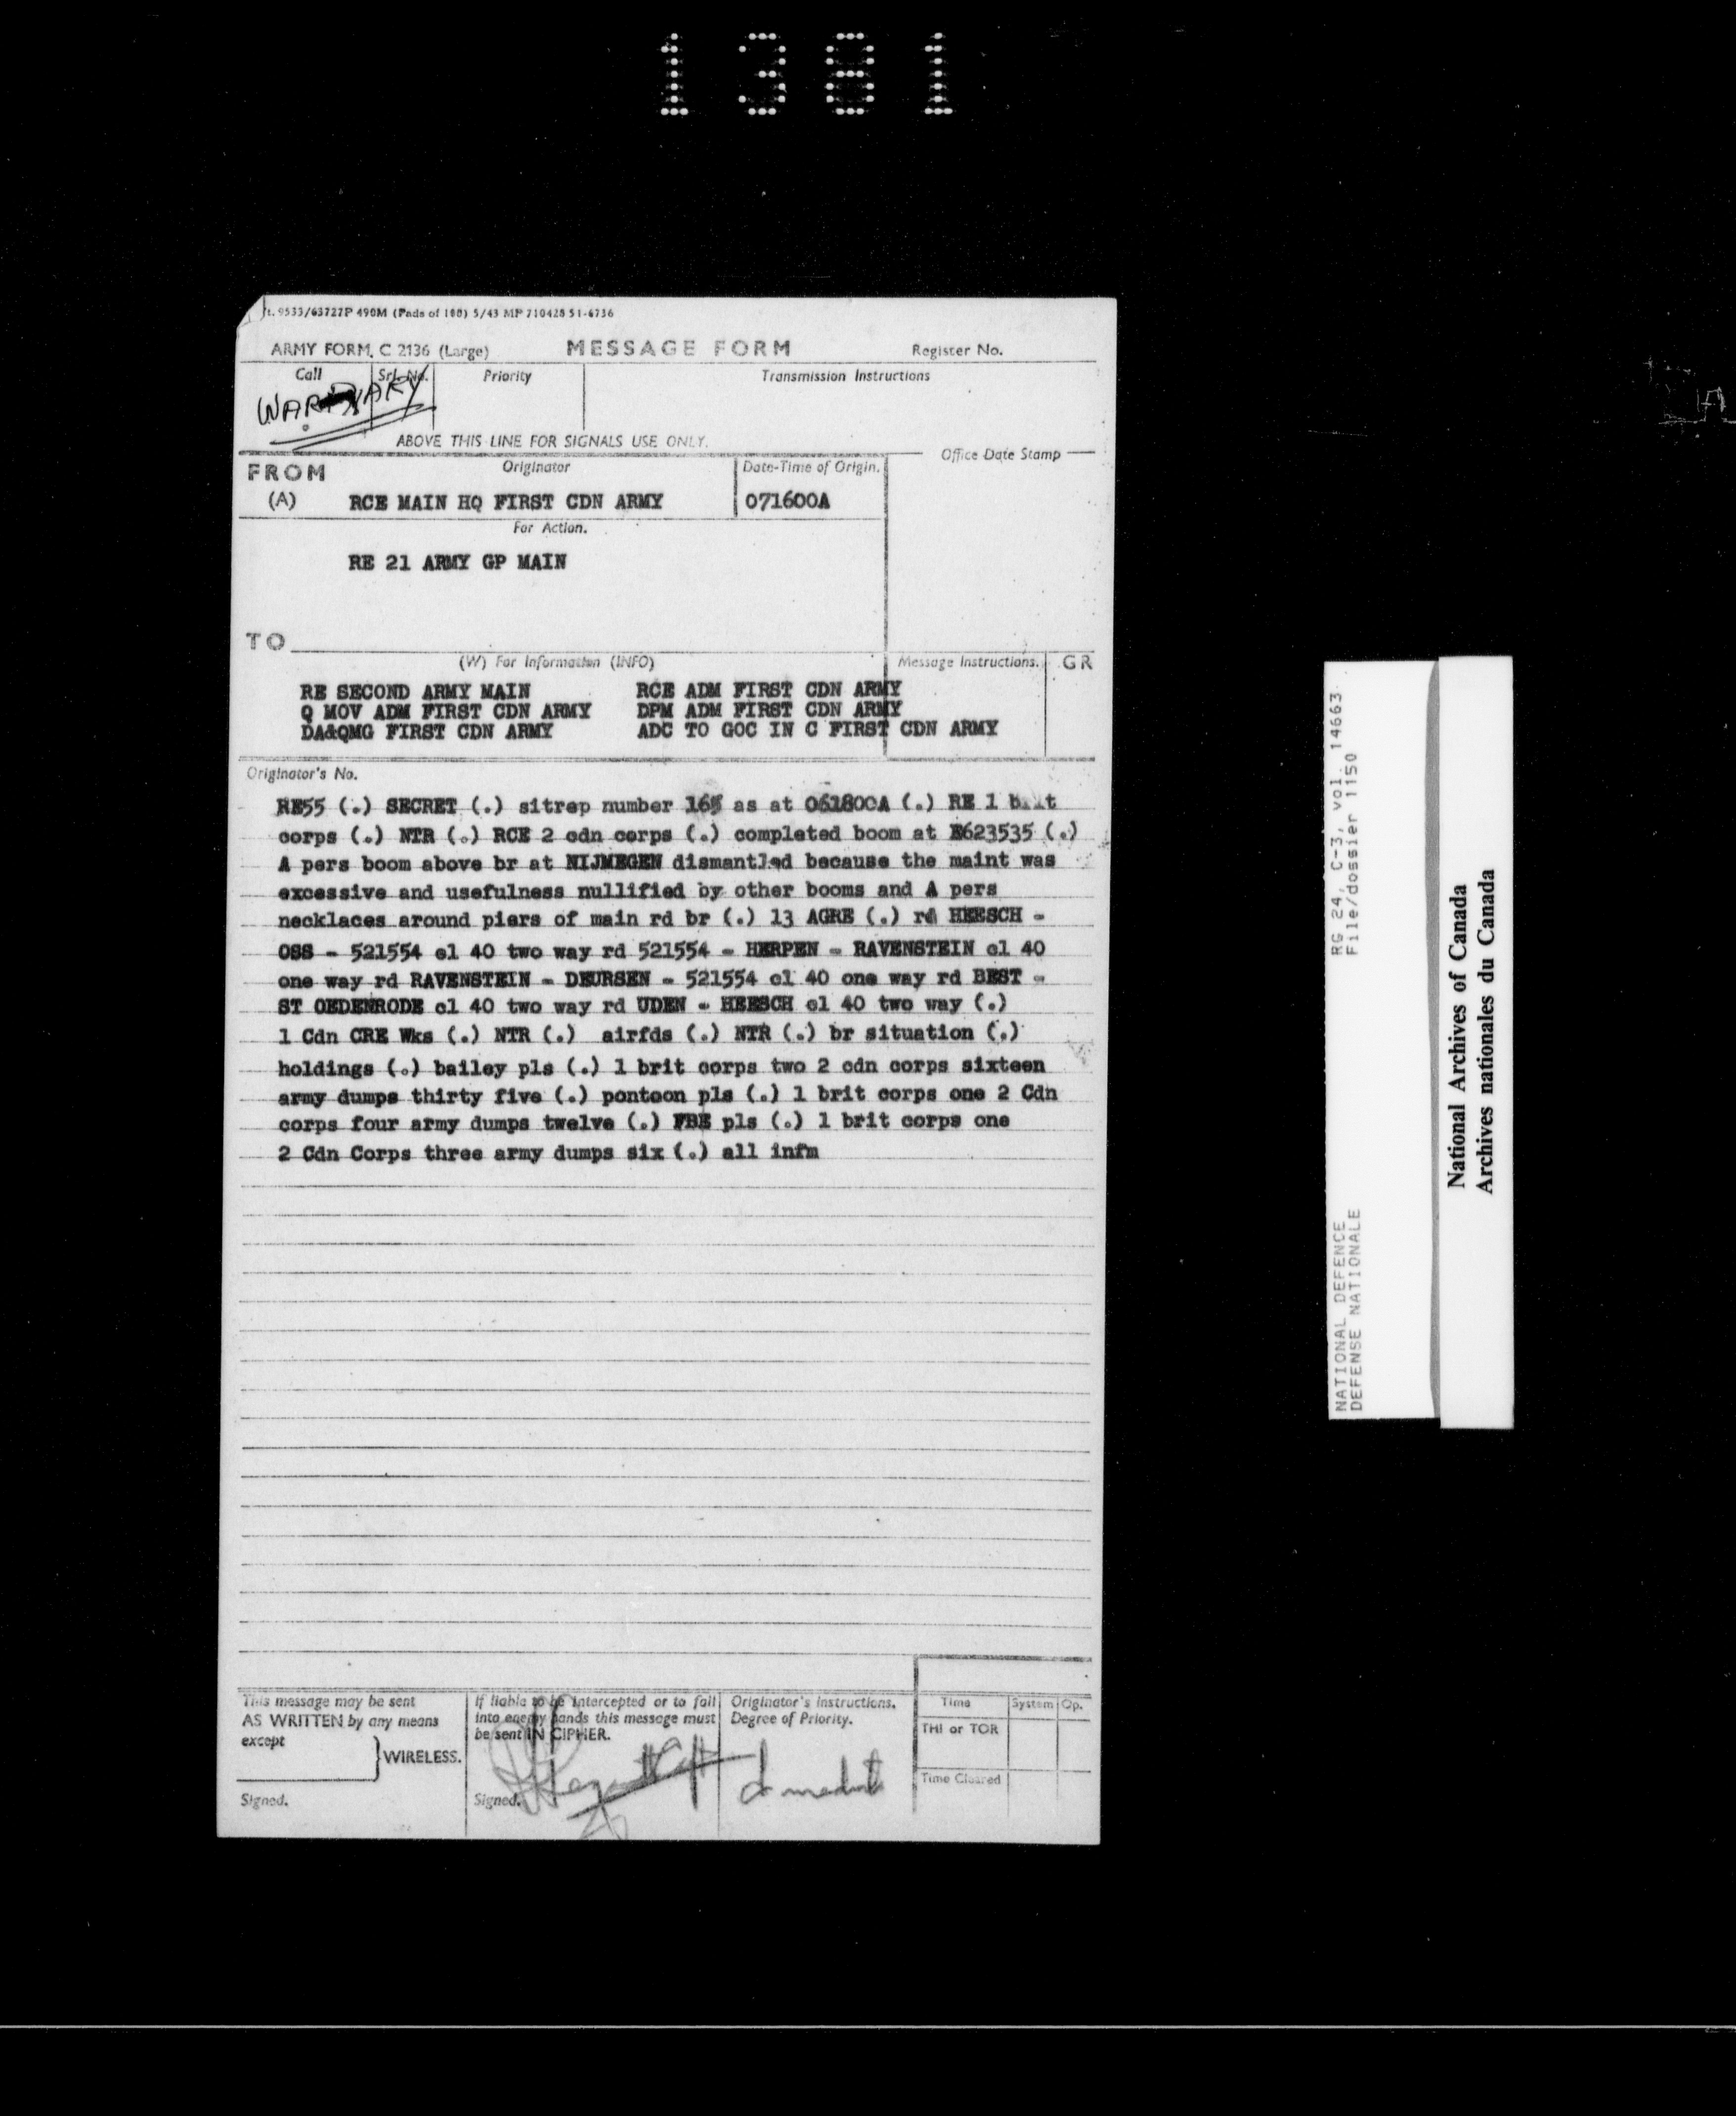 1381
t. 9533/63727P 490M (Pads of 100) 5/43 MP 710428 51-6736
ARMY FORM, C 2136 (Large) MESSAGE FORM Register No.
Call Srl. No. Priority Transmission Instructions
WAR DIARY
ABOVE THIS LINE FOR SIGNALS USE ONLY.
FROM Originator Date-Time of Origin. Office Date Stamp
(A) RCE MAIN HQ FIRST CDN ARMY 071600A
For Action.
RE 21 ARMY GP MAIN
TO
(W) For Information (INFO) Message Instructions. GR
RE SECOND ARMY MAIN RCE ADM FIRST CDN ARMY
Q MOV ADM FIRST CDN ARMY DPM ADM FIRST CDN ARMY
DA&QMG FIRST CDN ARMY ADC TO GOC IN C FIRST CDN ARMY
Originator's No.
RE55 (.) SECRET (.) sitrep number 165 as at 061800A (.) RE 1 brit
corps (.) NTR (.) RCE 2 cdn corps (.) completed boom at E623535 (.)
A pers boom above br at NIJMEGEN dismantled because the maint was
excessive and usefulness nullified by other booms and A pers
necklaces around piers of main rd br (.) 13 AGRE (.) rd HEESCH -
OSS - 521554 cl 40 two way rd 521554 - HERPEN - RAVENSTEIN cl 40
one way rd RAVENSTEIN - DEURSEN - 521554 cl 40 one way rd BEST -
ST OEDENRODE cl 40 two way rd UDEN - HEESCH cl 40 two way (.)
1 Cdn CRE Wks (.) NTR (.) airfds (.) NTR (.) br situation (.)
holdings (.) bailey pls (.) 1 brit corps two 2 cdn corps sixteen
army dumps thirty five (.) pontoon pls (.) 1 brit corps one 2 Cdn
corps four army dumps twelve (.) FBE pls (.) 1 brit corps one
2 Cdn Corps three army dumps six (.) all infm
This message may be sent AS WRITTEN by any means except
WIRELESS.
Signed.
If liable to be intercepted or to fall into enemy hands this message must be sent IN CIPHER.
Signed.
Originator's Instructions. Degree of Priority.
Time System Op.
THI or TOR
Time Cleared
RG 24, C-3, vol. 14663
File/dossier 1150
NATIONAL DEFENCE
DEFENSE NATIONALE
National Archives of Canada
Archives nationales du Canada